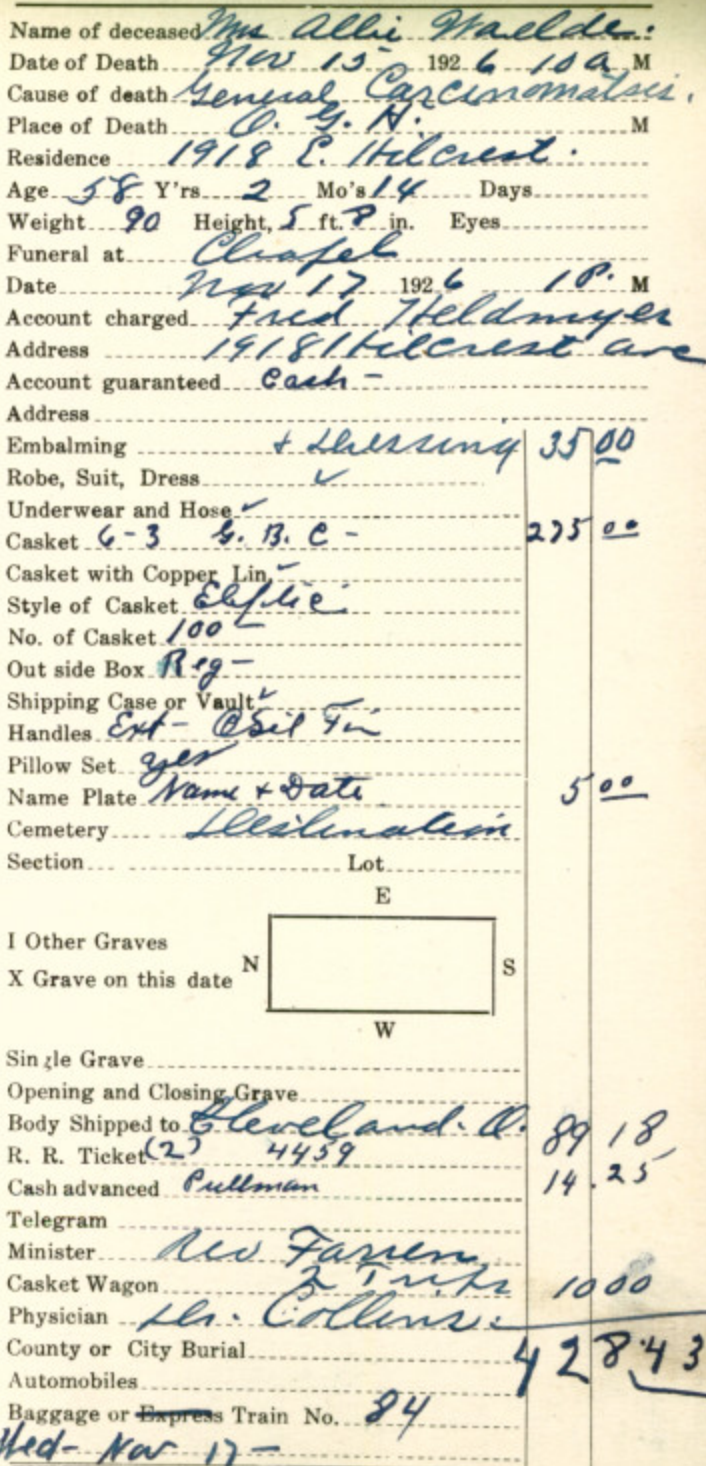 Name of deceased Mrs Allie Waelde.
Date of Death Nov 15 1926 10 a M
Cause of death General Carcinomatsis.
Place of Death O. G. H. M
Residence 1918 E. Hilcrest.
Age 58 Y'rs 2 Mo's 14 Days
Weight 90 Height, 5 ft. 8 in. Eyes
Funeral at Chapel
Date Nov 17 1926 1 P. M
Account charged Fred Heldmyer
Address 1918 Hilcrest ave
Account guaranteed Cash -
Address
Embalming + Dressing 35 00
Robe, Suit, Dress ✓
Underwear and Hose ✓
Casket 6-3 G. B. C - 275 00
Casket with Copper Lin. ✓
Style of Casket Eliptic
No. of Casket 100 -
Out side Box Reg -
Shipping Case or Vault ✓
Handles Ext - Sil
Pillow Set yes
Name Plate Name + Date 5 00
Cemetery Destination
Section Lot
E
I Other Graves
X Grave on this date N S
W
Single Grave
Opening and Closing Grave
Body Shipped to Cleveland. O. 89 18
R. R. Ticket (2) 4459
Cash advanced Pullman 14.25
Telegram
Minister Rev Farren
Casket Wagon 2 Trips 10 00
Physician Dr. Collins.
County or City Burial 428.43
Automobiles
Baggage or Express Train No. 84
Wed - Nov 17 -